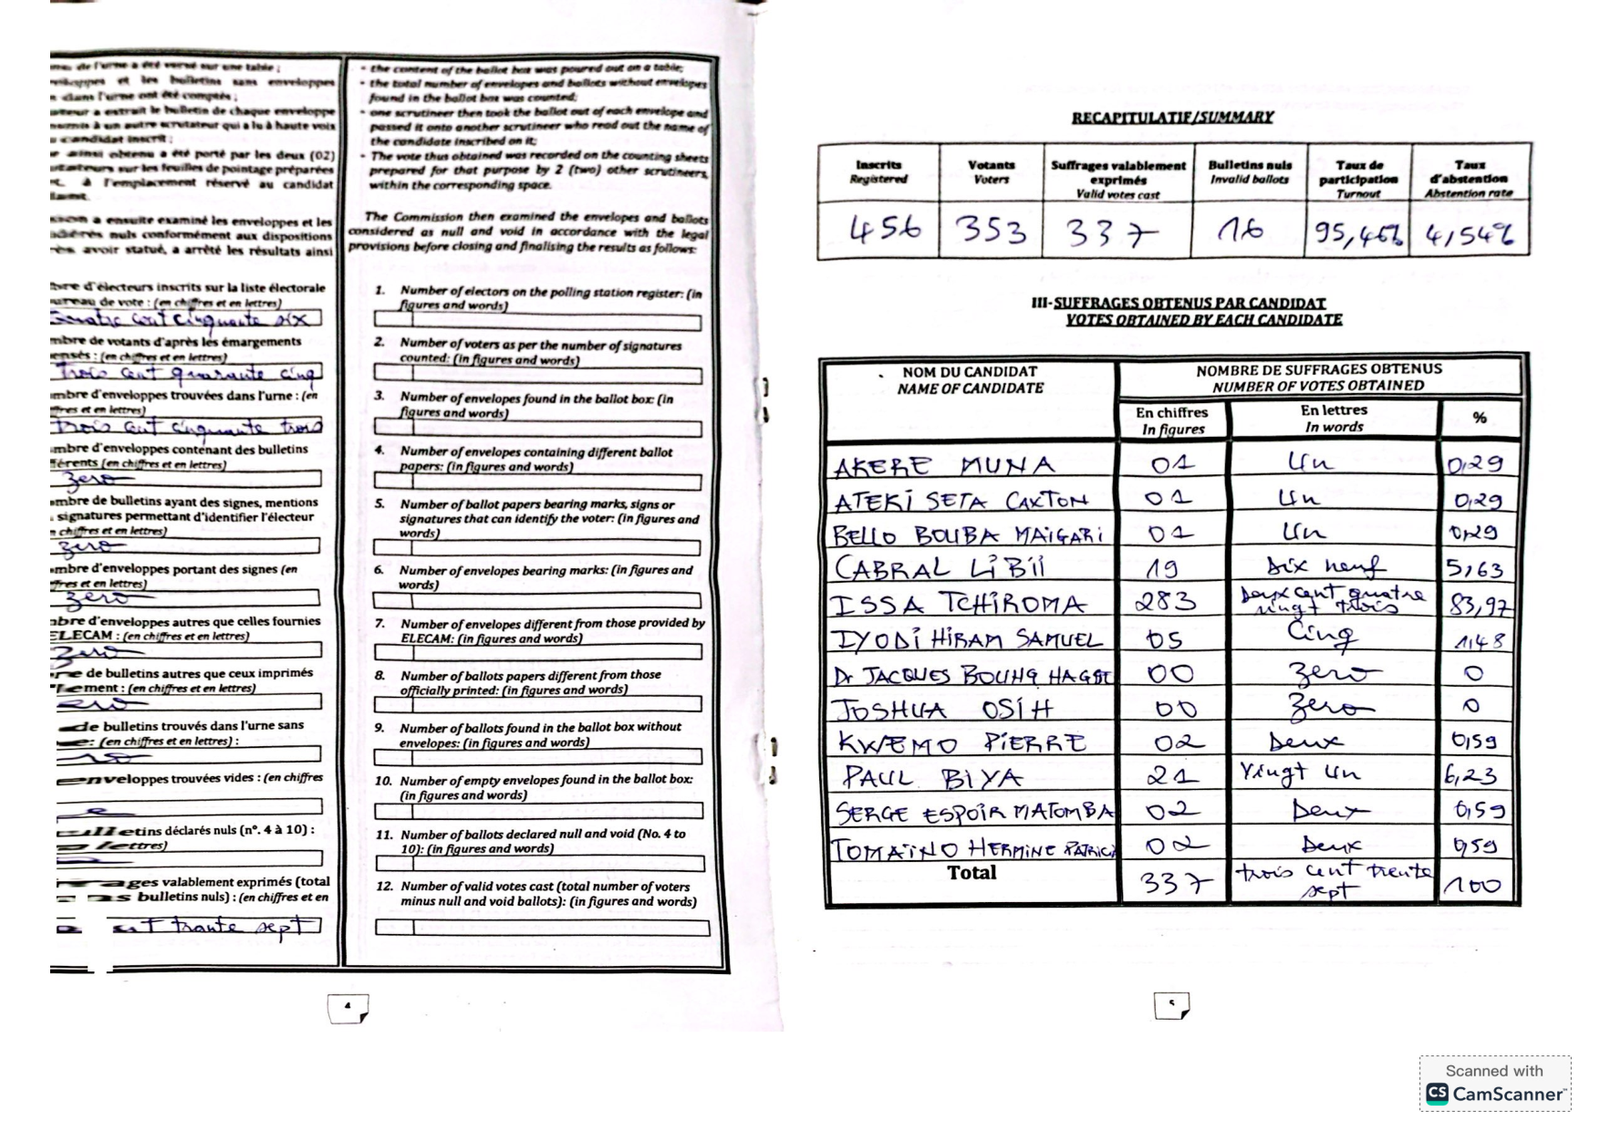 de l'urne a été versé sur une table ;
et les bulletins sans enveloppes
dans l'urne ont été comptés ;
a extrait le bulletin de chaque enveloppe
à un autre scrutateur qui a lu à haute voix
candidat inscrit ;
ainsi obtenu a été porté par les deux (02)
sur les feuilles de pointage préparées
à l'emplacement réservé au candidat
a ensuite examiné les enveloppes et les
nuls conformément aux dispositions
avoir statué, a arrêté les résultats ainsi
d'électeurs inscrits sur la liste électorale
bureau de vote : (en chiffres et en lettres)
Quatre cent cinquante six
de votants d'après les émargements
(en chiffres et en lettres)
trois cent quarante cinq
d'enveloppes trouvées dans l'urne : (en
et en lettres)
trois cent cinquante trois
d'enveloppes contenant des bulletins
(en chiffres et en lettres)
zero
de bulletins ayant des signes, mentions
signatures permettant d'identifier l'électeur
chiffres et en lettres)
zero
d'enveloppes portant des signes (en
et en lettres)
zero
d'enveloppes autres que celles fournies
ELECAM : (en chiffres et en lettres)
zero
de bulletins autres que ceux imprimés
(en chiffres et en lettres)
de bulletins trouvés dans l'urne sans
(en chiffres et en lettres) :
enveloppes trouvées vides : (en chiffres
déclarés nuls (n°. 4 à 10) :
lettres)
valablement exprimés (total
bulletins nuls) : (en chiffres et en
trente sept
• the content of the ballot box was poured out on a table;
• the total number of envelopes and ballots without envelopes
found in the ballot box was counted;
• one scrutineer then took the ballot out of each envelope and
passed it onto another scrutineer who read out the name of
the candidate inscribed on it;
• The vote thus obtained was recorded on the counting sheets
prepared for that purpose by 2 (two) other scrutineers,
within the corresponding space.
The Commission then examined the envelopes and ballots
considered as null and void in accordance with the legal
provisions before closing and finalising the results as follows:
1. Number of electors on the polling station register: (in
figures and words)
2. Number of voters as per the number of signatures
counted: (in figures and words)
3. Number of envelopes found in the ballot box: (in
figures and words)
4. Number of envelopes containing different ballot
papers: (in figures and words)
5. Number of ballot papers bearing marks, signs or
signatures that can identify the voter: (in figures and
words)
6. Number of envelopes bearing marks: (in figures and
words)
7. Number of envelopes different from those provided by
ELECAM: (in figures and words)
8. Number of ballots papers different from those
officially printed: (in figures and words)
9. Number of ballots found in the ballot box without
envelopes: (in figures and words)
10. Number of empty envelopes found in the ballot box:
(in figures and words)
11. Number of ballots declared null and void (No. 4 to
10): (in figures and words)
12. Number of valid votes cast (total number of voters
minus null and void ballots): (in figures and words)
4
RECAPITULATIF/SUMMARY
Inscrits Registered Votants Voters Suffrages valablement exprimés Valid votes cast Bulletins nuls Invalid ballots Taux de participation Turnout Taux d'abstention Abstention rate
456 353 337 16 95,46% 4,54%
III-SUFFRAGES OBTENUS PAR CANDIDAT
VOTES OBTAINED BY EACH CANDIDATE
NOM DU CANDIDAT NOMBRE DE SUFFRAGES OBTENUS
NAME OF CANDIDATE NUMBER OF VOTES OBTAINED
En chiffres En lettres %
In figures In words
AKERE MUNA 01 Un 0,29
ATEKI SETA CAXTON 01 Un 0,29
BELLO BOUBA MAIGARI 01 Un 0,29
CABRAL LIBII 19 Dix neuf 5,63
ISSA TCHIROMA 283 Deux cent quatre vingt trois 83,97
IYODI HIRAM SAMUEL 05 Cinq 1,48
Dr JACQUES BOUHG HAGBE 00 zero 0
JOSHUA OSIH 00 zero 0
KWEMO PIERRE 02 Deux 0,59
PAUL BIYA 21 Vingt Un 6,23
SERGE ESPOIR MATOMBA 02 Deux 0,59
TOMAINO HERMINE PATRICIA 02 Deux 0,59
Total 337 trois cent trente sept 100
5
Scanned with
CS CamScanner